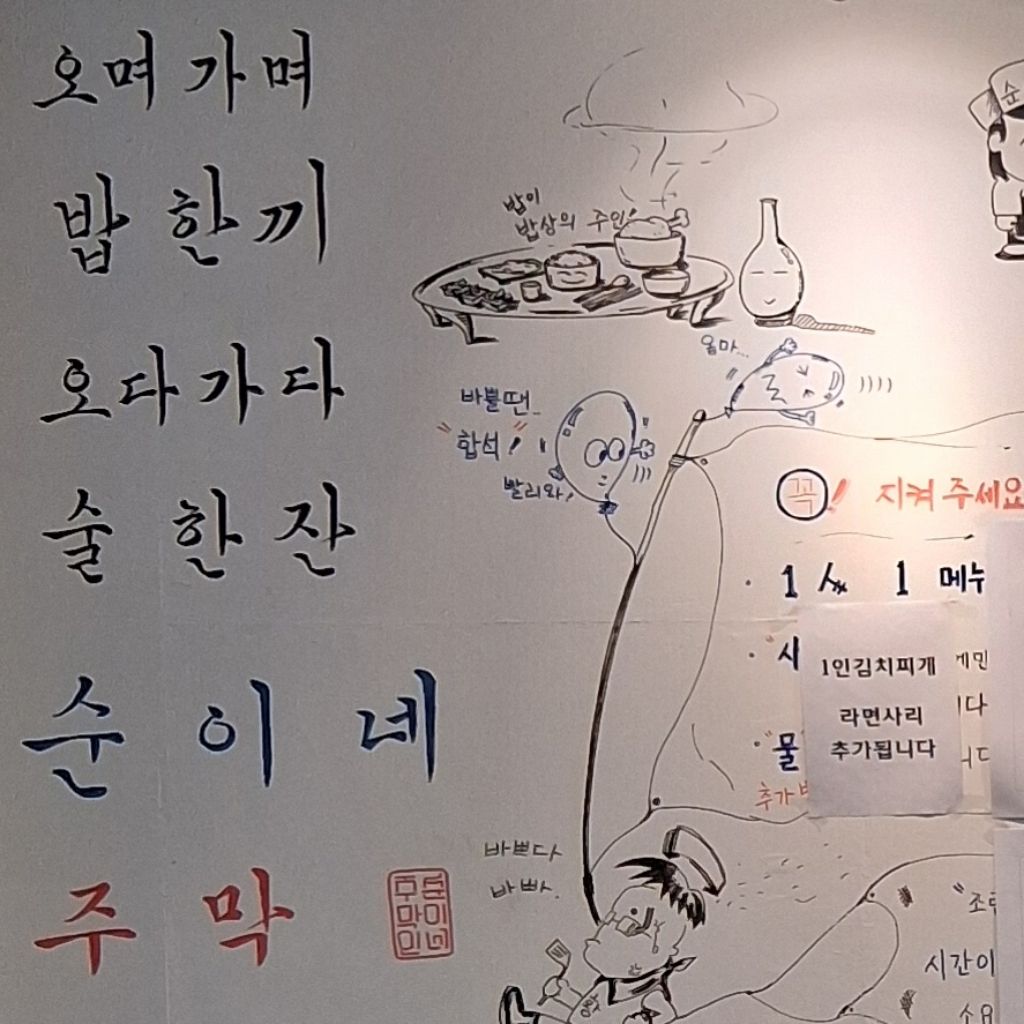 오며 가며
밥 한끼
오다가다
술 한 잔
순 이 네
주 막
밥이
밥상의 주인!
엄마...
바쁠땐..
"합석"!
빨리와!
꼭! 지켜주세요
· 1人 1 메뉴
· "시
· "물
추가
1인김치찌개
라면사리
추가됩니다
바쁘다
바빠.
시간이